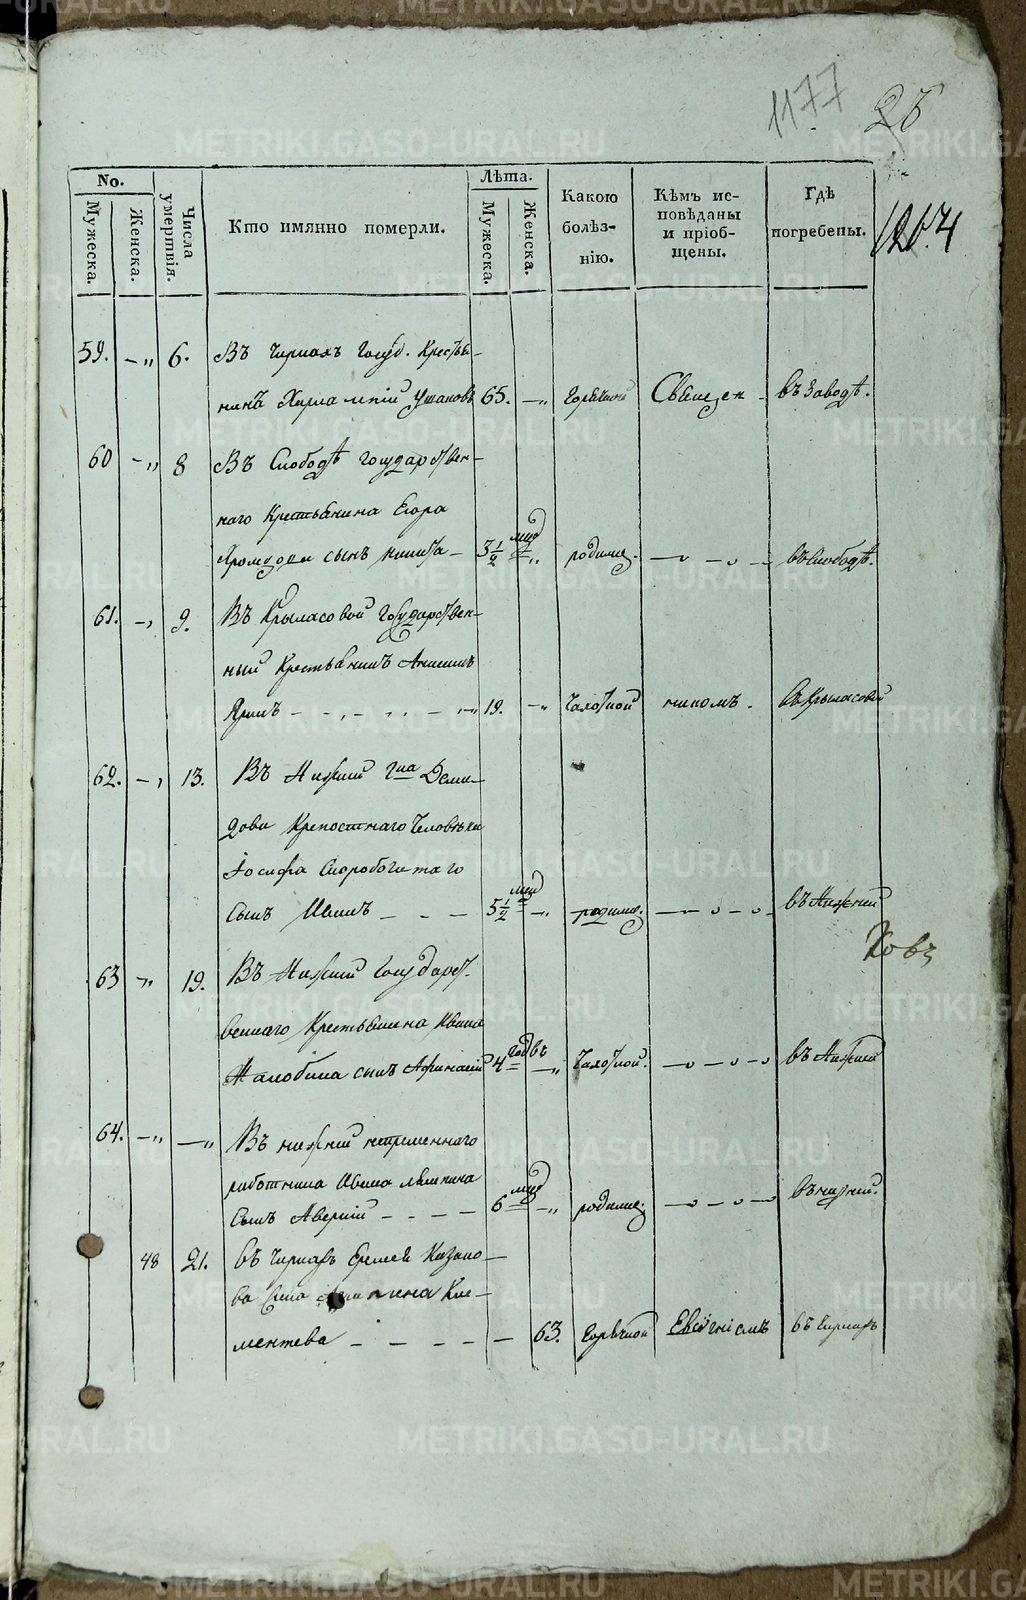 1177
26
No.
Мужеска.
Женска.
Числа умертвія.
Кто имянно померли.
Лѣта.
Мужеска.
Женска.
Какою болѣз-
нію.
Кѣмъ ис-
повѣданы
и пріоб-
щены.
Гдѣ
погребены.
59. 6. Въ Чирьахъ Госуд. Крестья-
нинъ Ушаковъ 65. Горячкой Священ- въ Заводѣ.
60 8 Въ Слободѣ Государствен-
наго Крестьянина Егора
сынъ Никита 3 1/2 мѣс родимц. въ Слободѣ.
61. 9. Въ Крыласовой Государствен-
ный Крестьянинъ Анисимъ
19. Чахоткой никомъ. въ Крыласовой
62. 13. Въ Нижней Гна Деми-
дова Крепостнаго Человѣка
Іосифа Скоробогатаго
сынъ Иванъ 5 1/2 мѣс родимц. въ Нижней
63 19. Въ Нижней Государст-
веннаго Крестьянина Ивана
сынъ Афанасій 4 годовъ Чахоткой. въ Нижней
64. Въ нижней непременнаго
работника Ивана
сынъ Аверкій 6 мѣс родимц. въ нижней.
48 21. въ Еремея Казако-
ва Кле-
ментева 63. Горячкой Евгеніемъ въ
METRIKI.GASO-URAL.RU